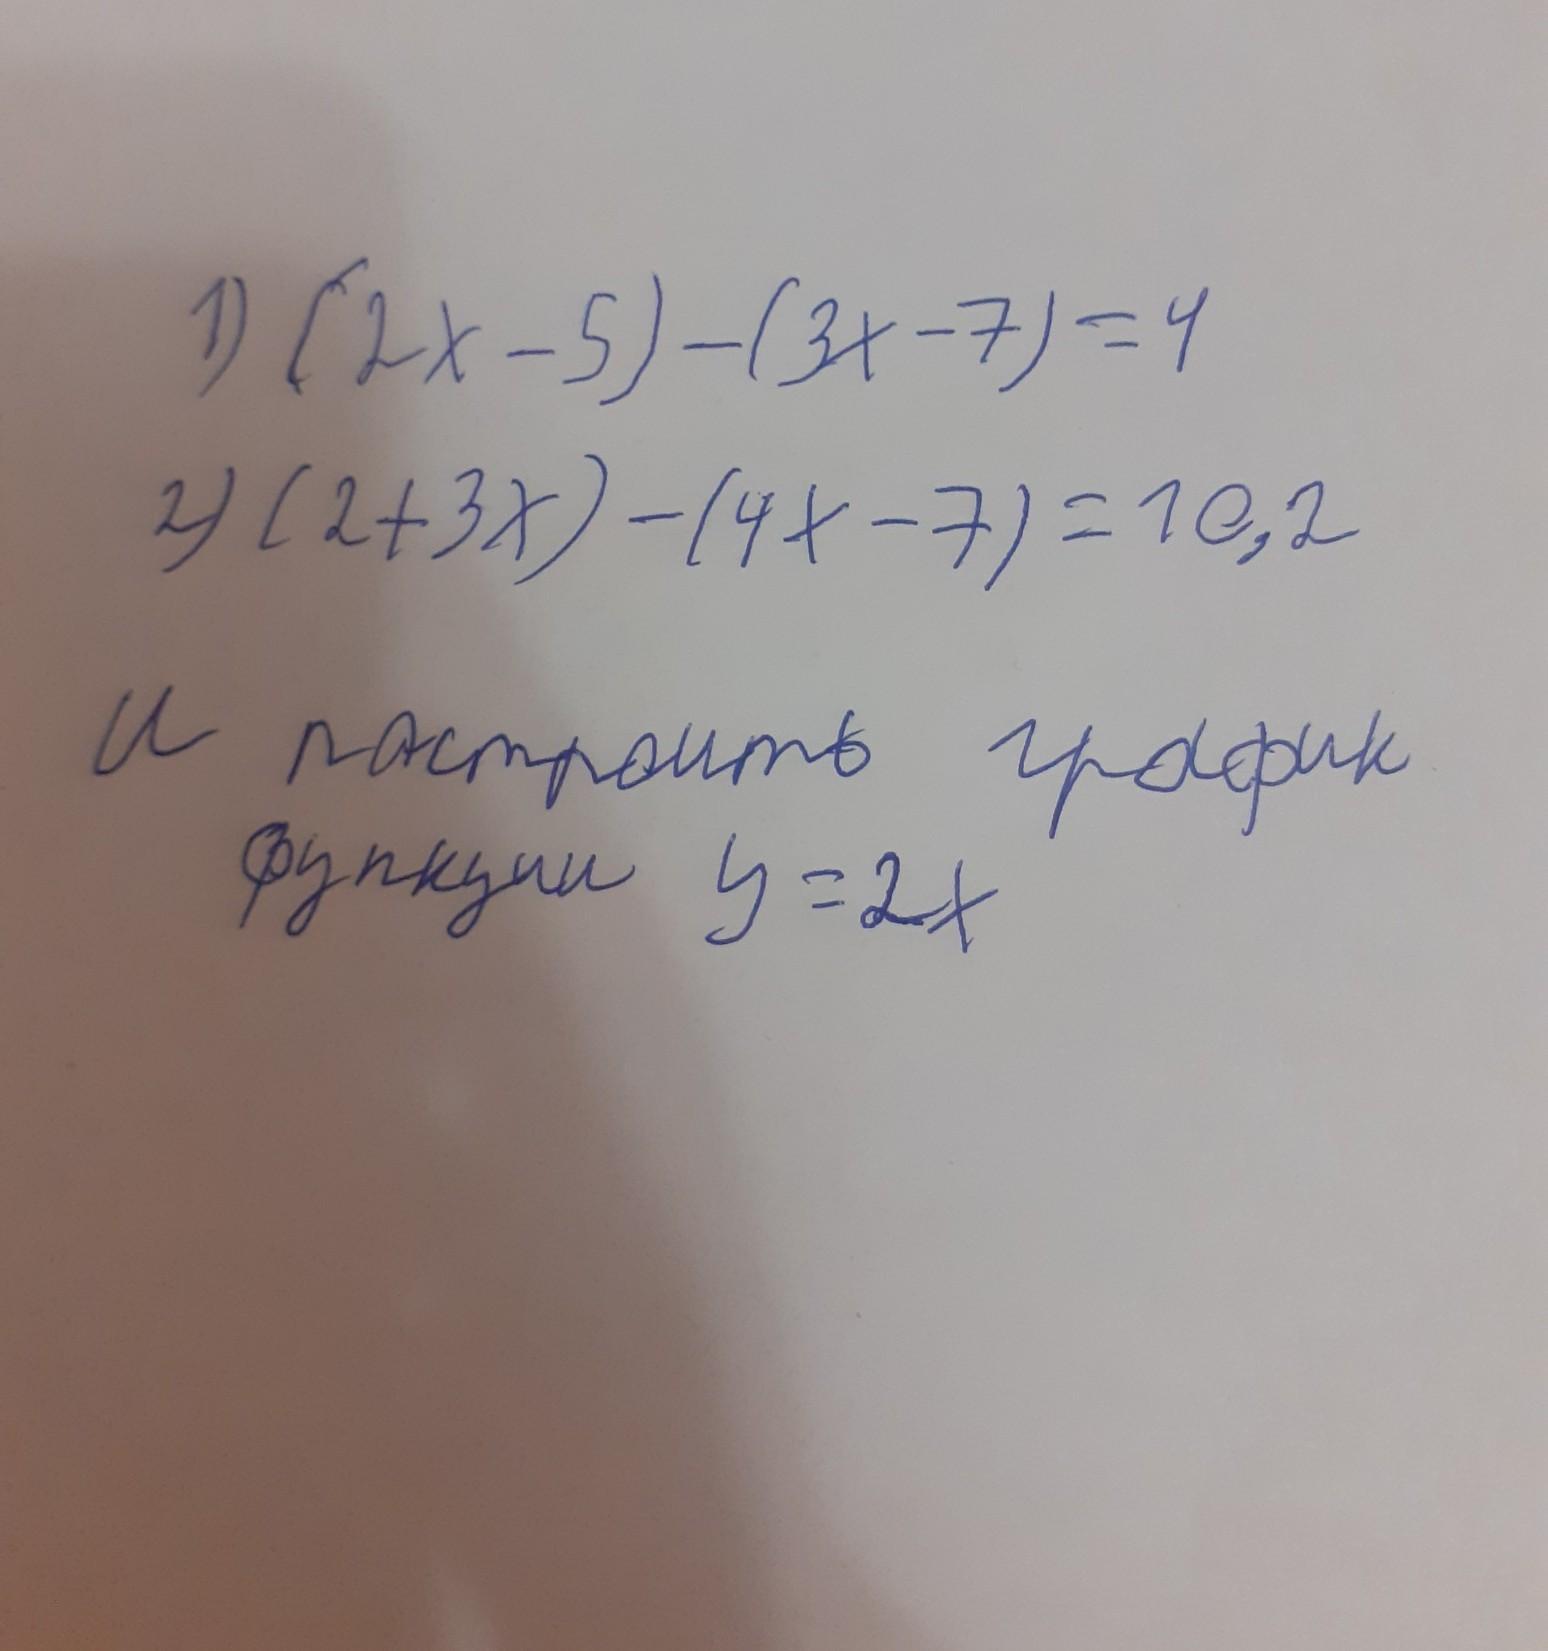 1) (2x-5)-(3x-7)=4
2) (2+3x)-(4x-7)=10,2
И построить график
функции y=2x